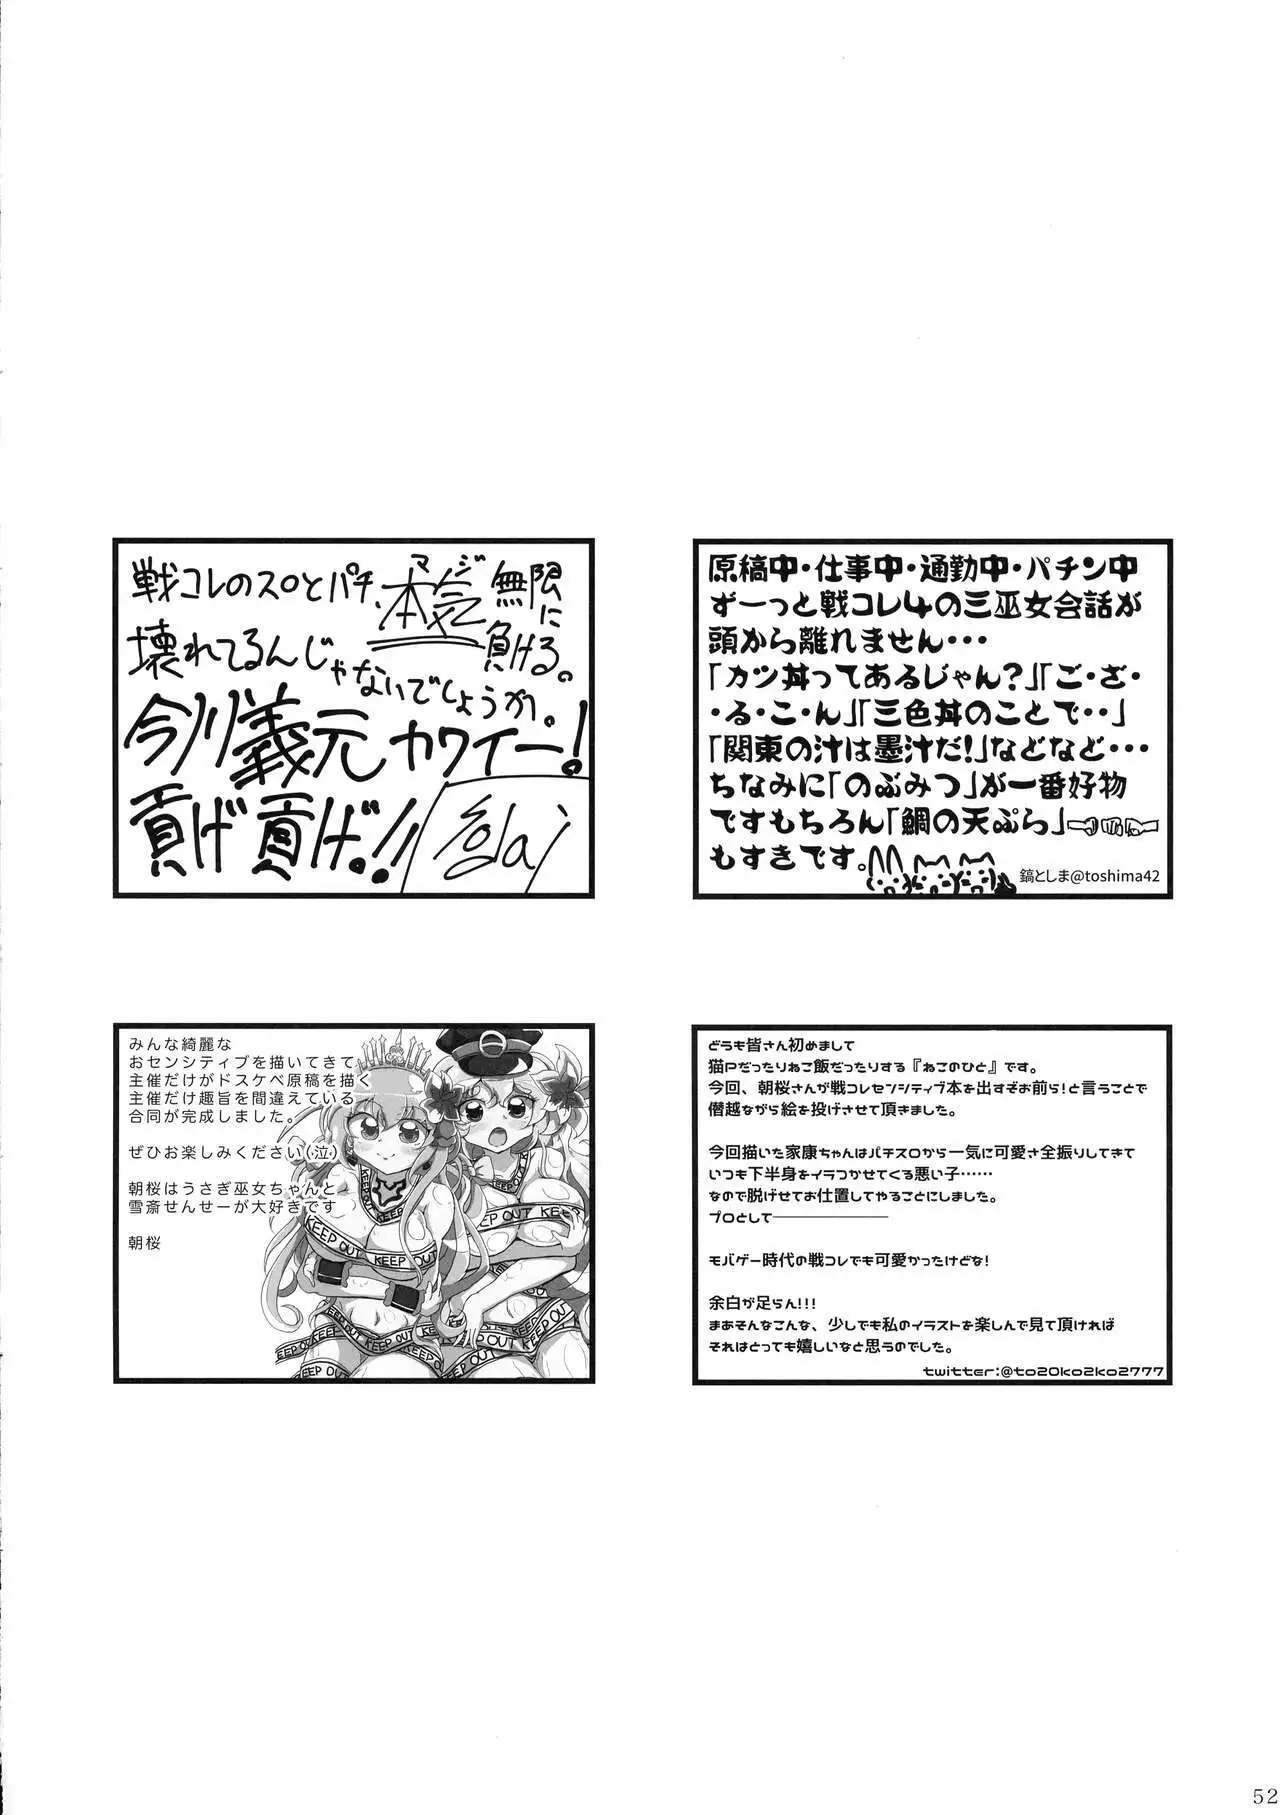 戦コレのスロとパチ、本気マジ無限に
壊れてるんじゃないでしょうか。負ける。
今川義元カワイー!
貢げ貢げ!!
原稿中・仕事中・通勤中・パチン中
ずーっと戦コレ4の三巫女会話が
頭から離れません・・・
「カツ丼ってあるじゃん?」「ご・ざ・
・る・こ・ん」「三色丼のことで・・」
「関東の汁は墨汁だ!」などなど・・・
ちなみに「のぶみつ」が一番好物
ですもちろん「鯛の天ぷら」
もすきです。
鎬としま@toshima42
みんな綺麗な
おセンシティブを描いてきて
主催だけがドスケベ原稿を描く
主催だけ趣旨を間違えている
合同が完成しました。
ぜひお楽しみください(泣)
朝桜はうさぎ巫女ちゃんと
雪斎せんせーが大好きです
朝桜
KEEP OUT
KEEP OUT
KEEP OUT
KEEP OUT
KEEP OUT
どうも皆さん初めまして
猫Pだったりねこ飯だったりする『ねこのひと』です。
今回、朝桜さんが戦コレセンシティブ本を出すぞお前ら!と言うことで
僭越ながら絵を投げさせて頂きました。
今回描いた家康ちゃんはパチスロから一気に可愛さ全振りしてきて
いつも下半身をイラつかせてくる悪い子……
なので脱げせてお仕置してやることにしました。
プロとして────────
モバゲー時代の戦コレでも可愛かったけどな!
余白が足らん!!!
まあそんなこんな、少しでも私のイラストを楽しんで見て頂ければ
それはとっても嬉しいなと思うのでした。
twitter:@to20ko2ko2777
52